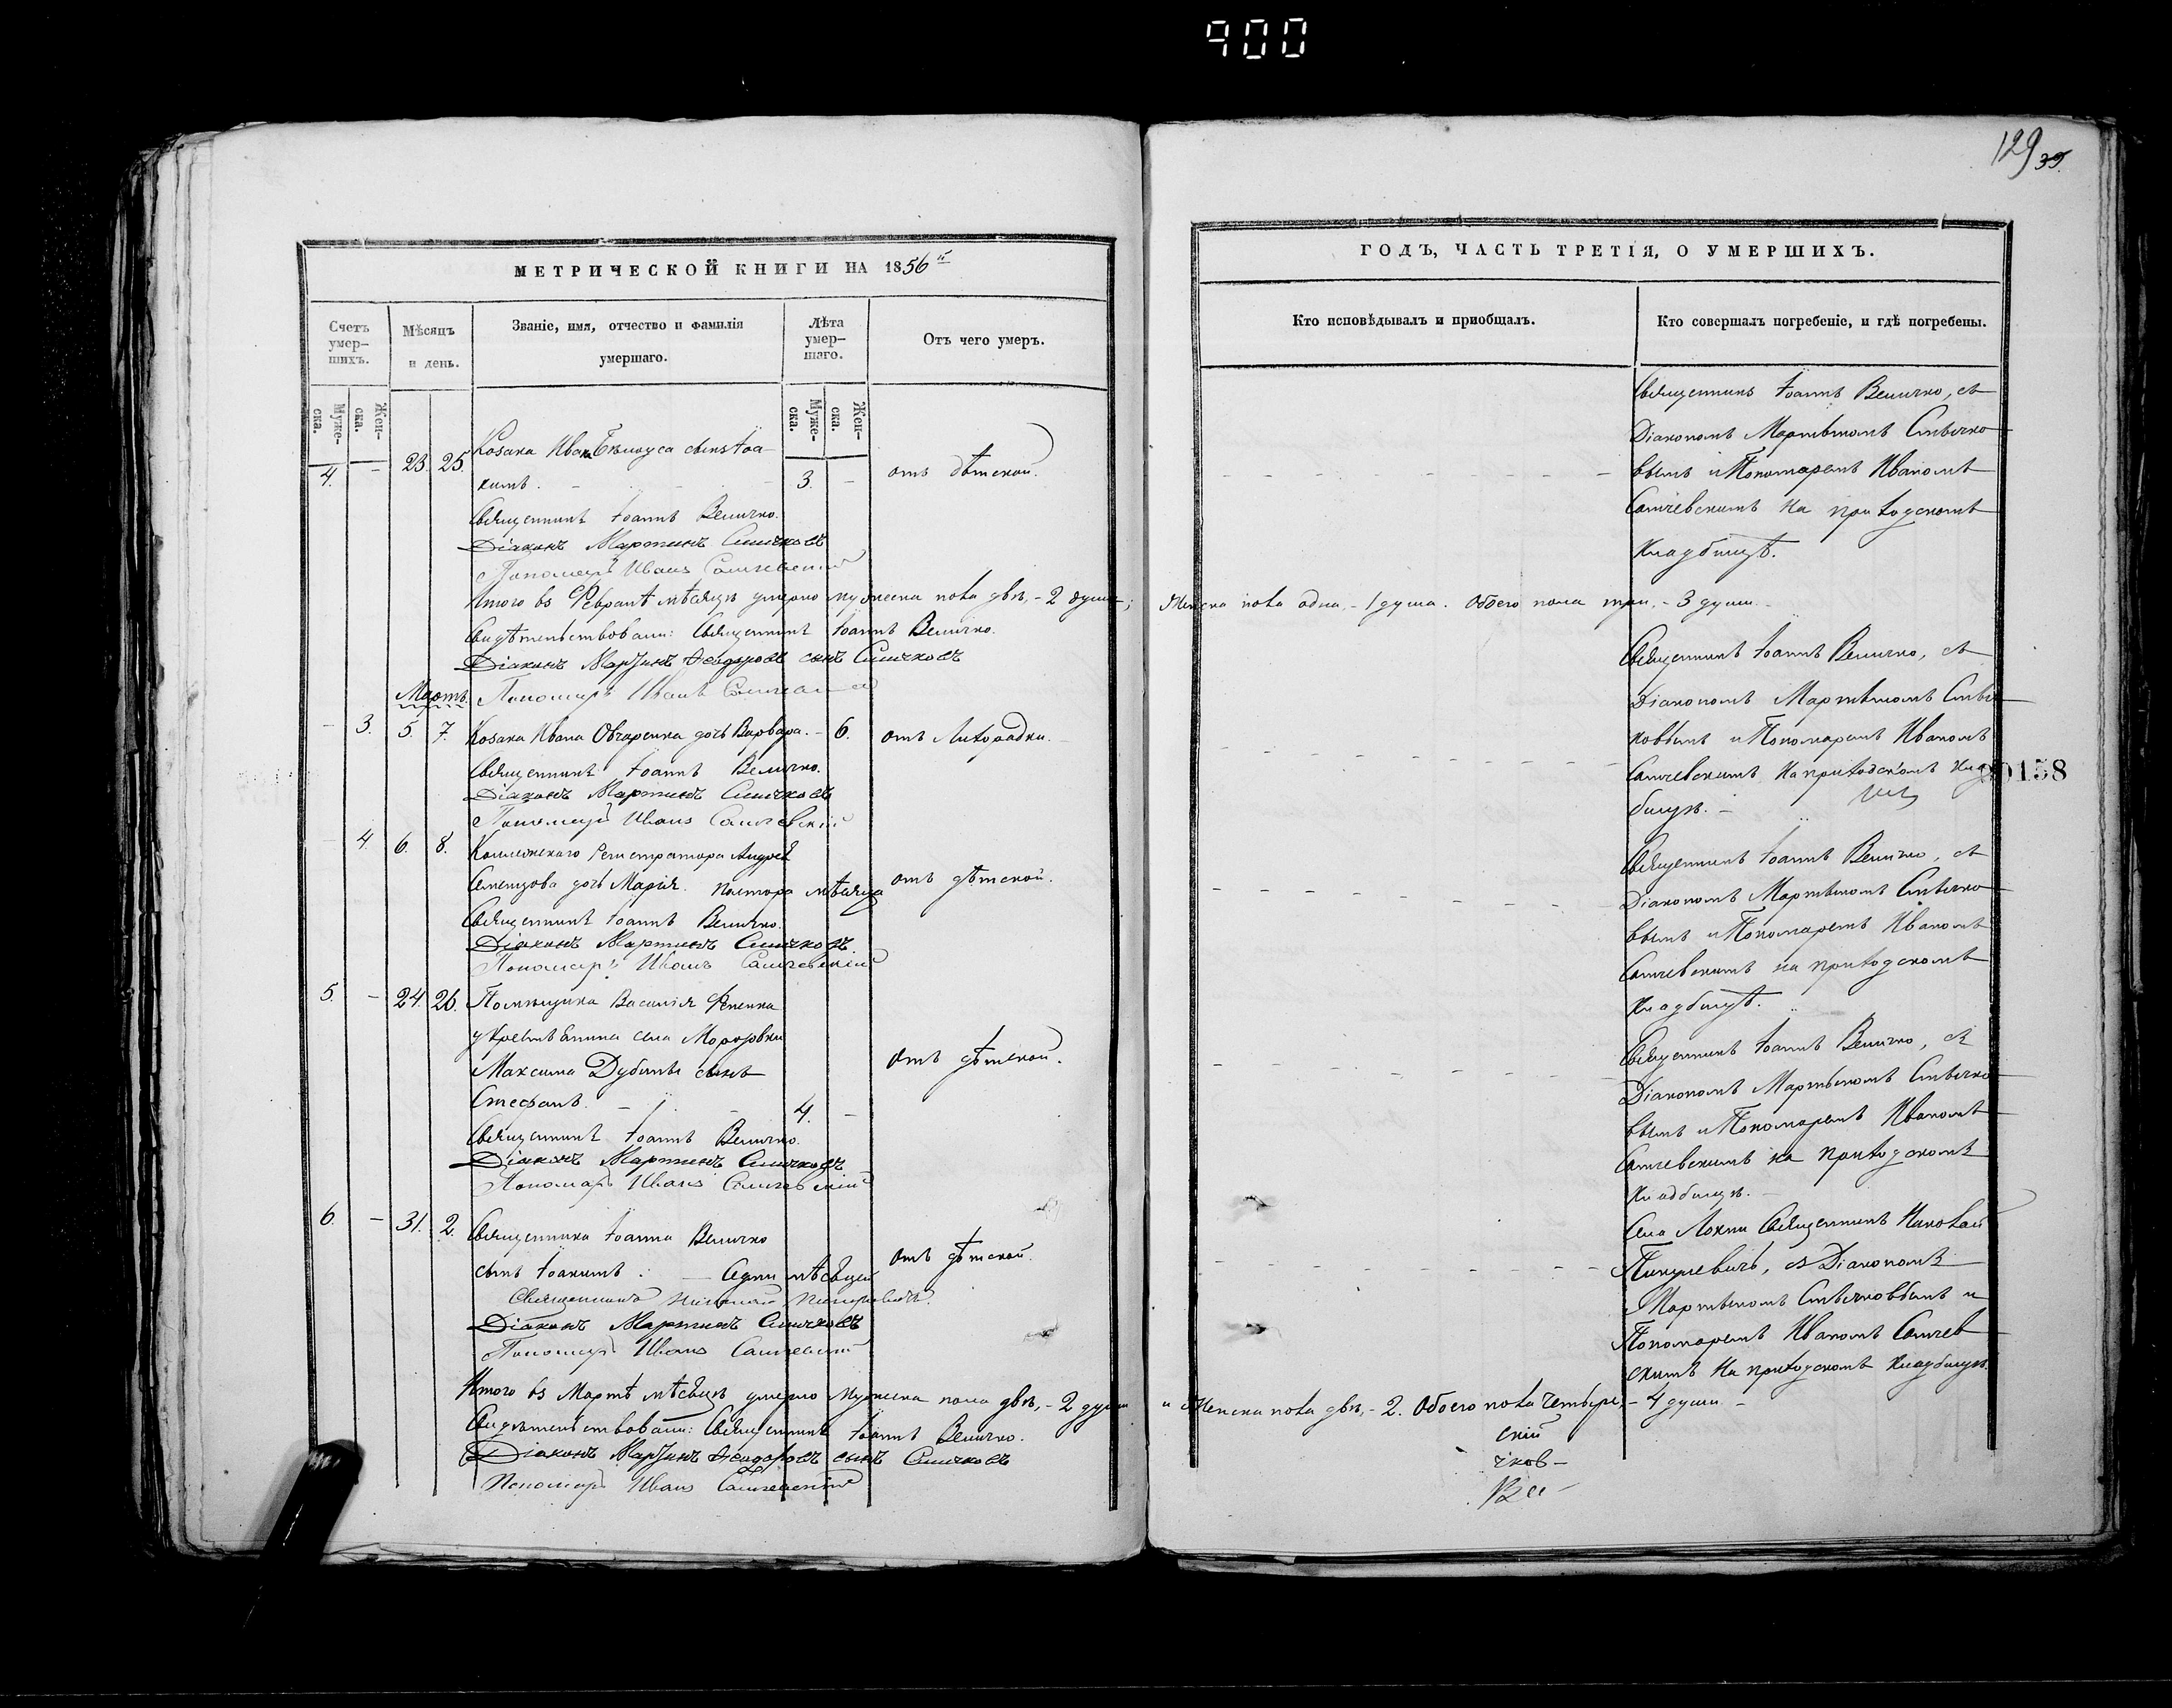 900
129 39.
МЕТРИЧЕСКОЙ КНИГИ НА 1856й
Счетъ умер-шихъ.
Мѣсяцъ и день.
Званіе, имя, отчество и фамилія умершаго.
Лѣта умер-шаго.
Отъ чего умеръ.
Муже-ска.
Жен-ска.
Муже-ска.
Жен-ска.
4. - 23. 25. Козака Ивана Бѣлоуса сынъ Іоа-
кимъ. 3. - отъ дѣтской.
Священникъ Іоаннъ Величко.
Діаконъ Мартинъ Слѣчковъ
Пономарь Иванъ Самчевскій
Итого въ Февралѣ мѣсяцѣ умерло мужеска пола двѣ, - 2 души;
Свидѣтельствовали: Священникъ Іоаннъ Величко.
Діаконъ Мартинъ Ѳеодоровъ сынъ
Мартъ. Пономарь Иванъ
- 3. 5. 7. Козака Ивана Овчаренка дочь Варвара. - 6. отъ Лихорадки.
Священникъ Іоаннъ Величко.
Діаконъ Мартинъ
Пономарь Иванъ Самчевскій
- 4. 6. 8. Коллежскаго Регистратора Андрея
Семенцова дочь Марія. Полтора мѣсяца отъ дѣтской.
Священникъ Іоаннъ Величко.
Діаконъ Мартинъ
Пономарь Иванъ Самчевскій
5. - 24. 26. Помѣщика Василія
села
Максима Дубины сынъ отъ дѣтской.
Стефанъ. - 4. -
Священникъ Іоаннъ Величко.
Діаконъ Мартинъ
Пономарь Иванъ Самчевскій
6. - 31. 2. Священника Іоанна Величко
сынъ Іоакимъ. - Седми мѣсяцей отъ дѣтской.
Священникъ Николай
Діаконъ Мартинъ
Пономарь Иванъ Самчевскій
Итого въ Мартѣ мѣсяцѣ умерло Мужеска пола двѣ, - 2 души
Свидѣтельствовали: Священникъ Іоаннъ Величко.
Діаконъ Мартинъ Ѳеодоровъ сынъ
Пономарь Иванъ Самчевскій
ГОДЪ, ЧАСТЬ ТРЕТІЯ, О УМЕРШИХЪ.
Кто исповѣдывалъ и пріобщалъ.
Кто совершалъ погребеніе, и гдѣ погребены.
Священникъ Іоаннъ Величко, съ
Діакономъ Мартыномъ
вымъ и Пономаремъ Иваномъ
Самчевскимъ на приходскомъ
Кладбищѣ.
Женска пола одна, - 1 душа. Обоего пола три, - 3 души.
Священникъ Іоаннъ Величко, съ
Діакономъ Мартыномъ
ковымъ и Пономаремъ Иваномъ
Самчевскимъ, на приходскомъ Клад
бищѣ. -
158
Священникъ Іоаннъ Величко, съ
Діакономъ Мартыномъ
вымъ и Пономаремъ Иваномъ
Самчевскимъ на приходскомъ
Кладбищѣ.
Священникъ Іоаннъ Величко, съ
Діакономъ Мартыномъ
вымъ и Пономаремъ Иваномъ
Самчевскимъ на приходскомъ
Кладбищѣ.
Села Локни Священникъ Николай
съ Діакономъ
Мартыномъ и
Пономаремъ Иваномъ Самчев
скимъ на приходскомъ кладбищѣ.
и Женска пола двѣ, - 2. Обоего пола четыре, - 4 души -
скій
чков -
Ве -